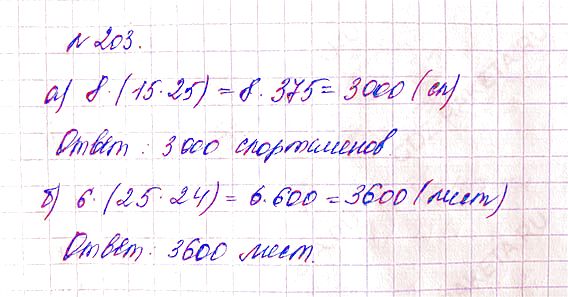 № 203.
а) 8·(15·25) = 8·375 = 3000 (сп)
Ответ: 3000 спортсменов.
б) 6·(25·24) = 6·600 = 3600 (лист)
Ответ: 3600 лист.